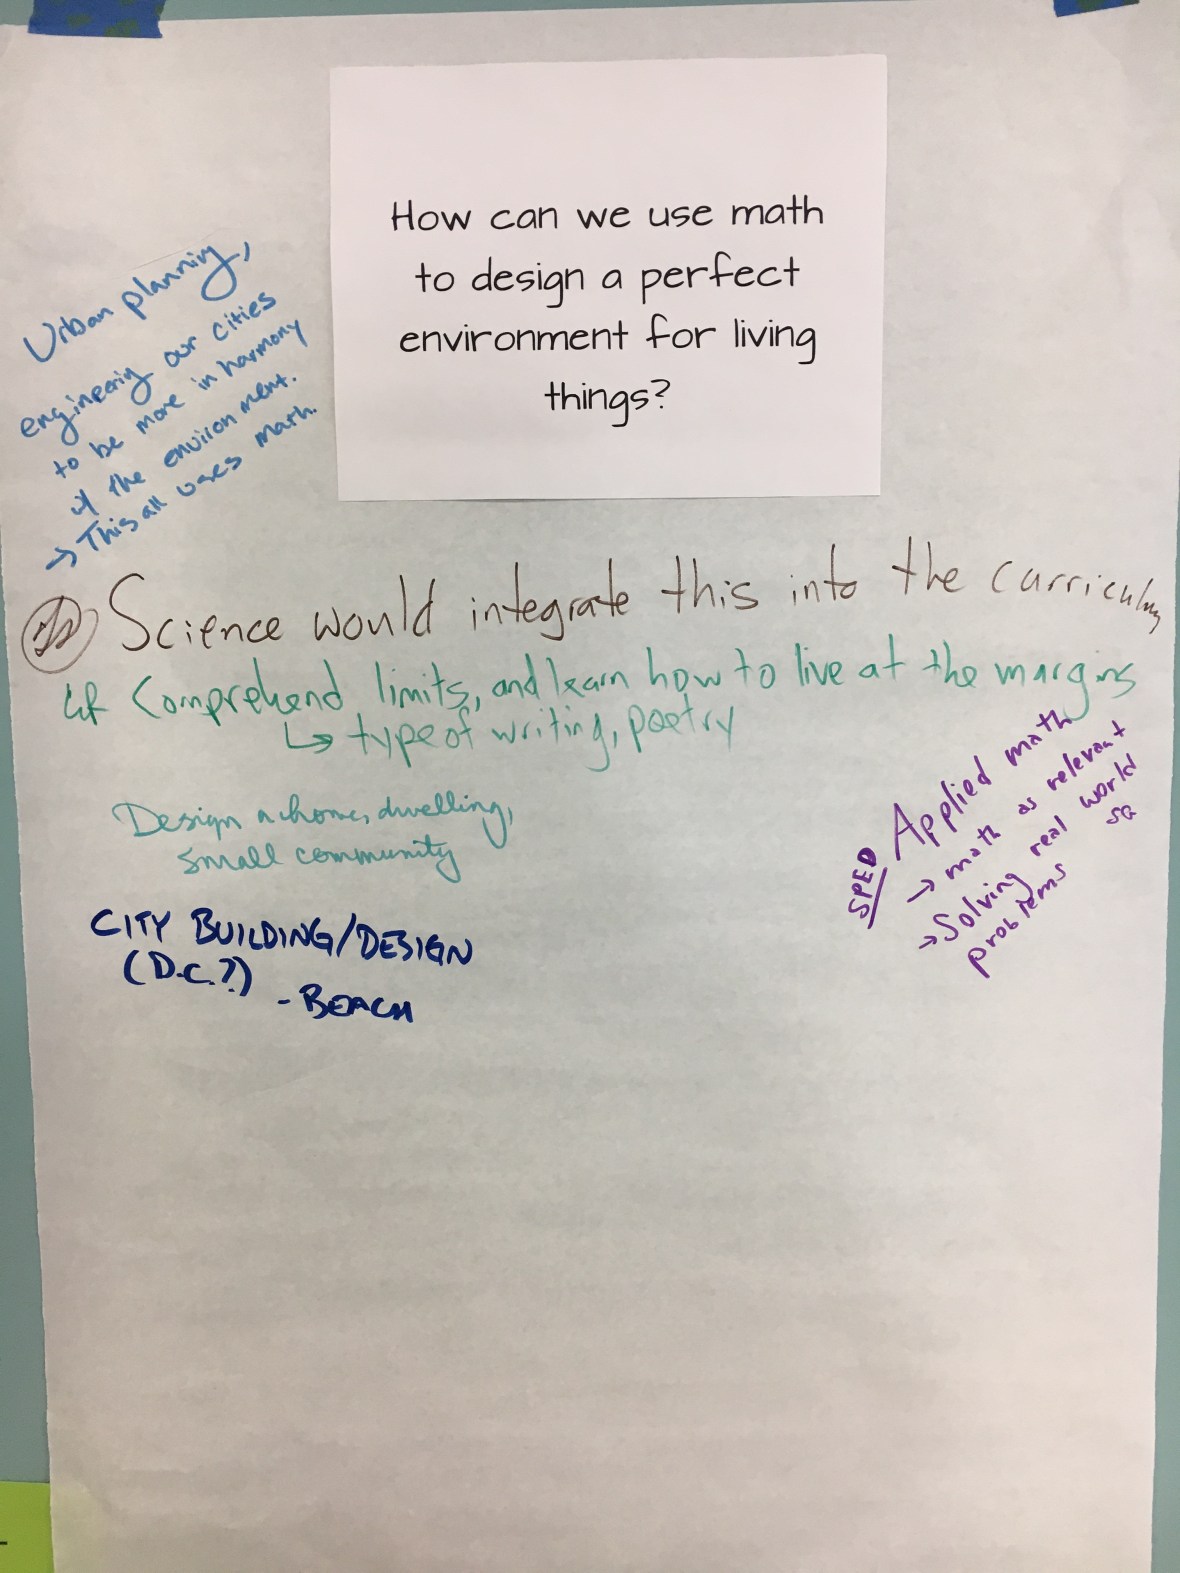 How can we use math
to design a perfect
environment for living
things?
Urban planning,
engineering our cities
to be more in harmony
of the environment.
→ This all uses math.
Science would integrate this into the curriculum
Comprehend limits, and learn how to live at the margins
↳ type of writing, poetry
Design a home, dwelling,
small community
CITY BUILDING/DESIGN
(D.C.?)
- BEACH
SPED
Applied math
→ math as relevant
→ Solving real world
problems